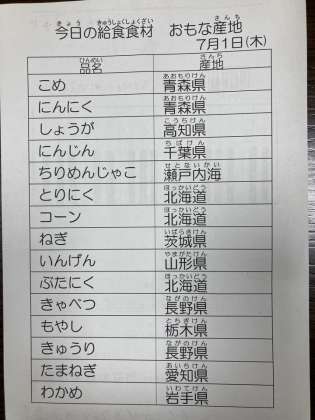 今日の給食食材 おもな産地
7月1日(木)
品名 産地
こめ 青森県
にんにく 青森県
しょうが 高知県
にんじん 千葉県
ちりめんじゃこ 瀬戸内海
とりにく 北海道
コーン 北海道
ねぎ 茨城県
いんげん 山形県
ぶたにく 北海道
きゃべつ 長野県
もやし 栃木県
きゅうり 長野県
たまねぎ 愛知県
わかめ 岩手県